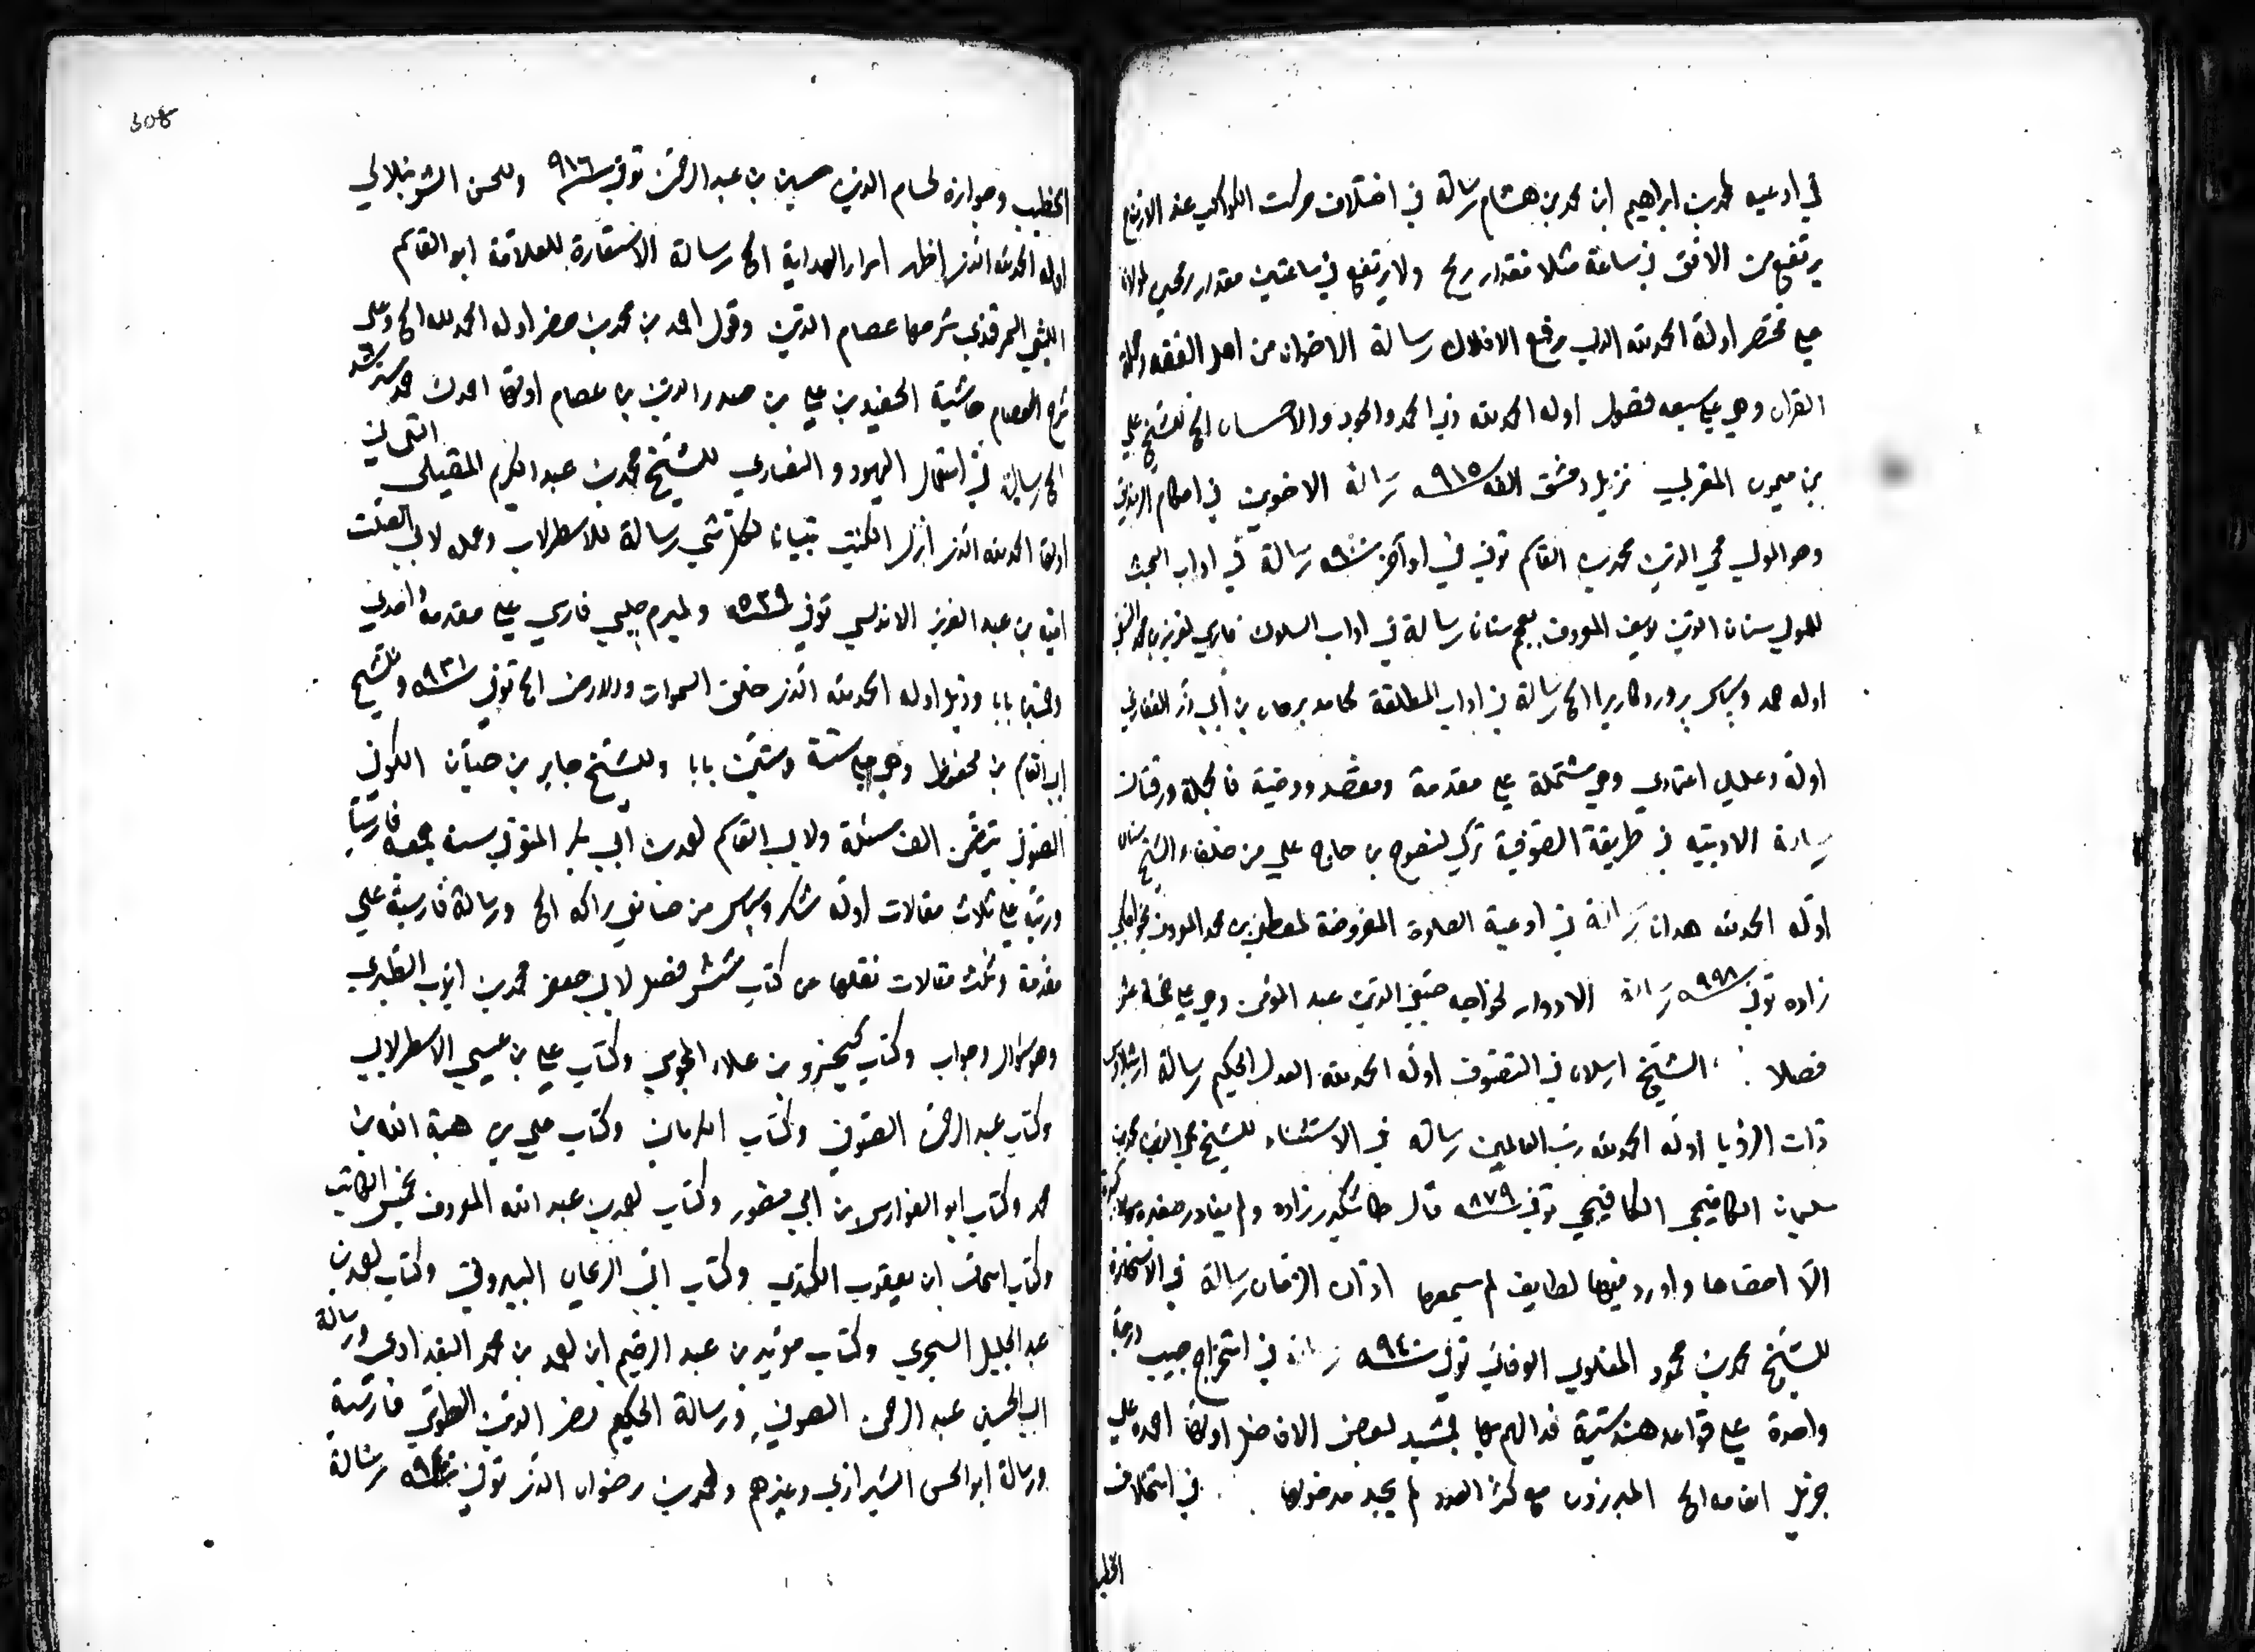 في ادعيه لمحمد بن ابراهيم ابن محمد بن هشام رسالة في اختلاف حركت الكواكب عند الارتفاع
يرتفع من الافق في ساعة مثلا مقدار رمح ولا يرتفع في ساعتين مقدار رمحين لمولانا
علي مختصر اوله الحمد لله الذي رفع الافلاك رسالة الاخوان من اهل الفقه وحملة
القران وهي علي سبعه فصول اوله الحمد لله ذي الحمد والجود والاحسان الخ للشيخ علي
بن ميمون المغربي نزيل دمشق الفه ٩١٥ رسالة الاخوين في احكام الزنديق
وهو المولي محي الدين محمد بن القاسم توفي في اواخر سنه ٩٠٠ رسالة في اداب البحث
للمولي سنان الدين يوسف المعروف بعجم سنان رسالة في اداب السلوك فارسي لعزيز بن محمد النسفي
اوله حمد وسپاس پروردكاريرا الخ رسالة في اداب المطالعة لحامد برهان بن ابي ذر الغفاري
اوله وعليك اعتمادي وهي مشتملة علي مقدمة ومقصد ووصية فالجملة ورقتان
رسالة الادبيه في طريقة الصوفية تركي لنصوح بن حاج علي من خلفاء الشيخ سنان
اوله الحمد لله هدانا رسالة في ادعية الصلوة المفروضة لمصطفي بن محمد المعروف
زاده توفي سنه ٩٩٨ رسالة الادوار لخواجه صفي الدين عبد المؤمن وهي علي خمسة عشر
فصلا الشيخ ارسلان في التصوف اوله الحمد لله العدل الحكيم رسالة
ذات الرؤيا اوله الحمد لله رب العالمين رسالة في الاستثناء للشيخ محي الدين محمد بن
سليمان الكافيجي الكافيجي توفي سنه ٨٧٩ قال طاشكبرزاده ولم يغادر صغيره ولا كبيرة
الا احصاها واورد فيها لطايف لم يسمعها اذان الزمان رسالة في الاستخارة
للشيخ محمد بن محمود المغلوي الوفائي توفي سنه ٩٤٠ رسالة في استخراج جيب درجة
واحدة علي قواعد هندسية قد الهم بها جمشيد لبعض الافاضل اولها احمده علي
جزيل انعامه الخ المبرزون مع كثرة العدد لم يجد مدخولها في استخلاف
الخطيب
308
الخطيب وجوازه لحسام الدين حسين بن عبد الرحمن توفي سنه ٩١٦ ولحسن الشرنبلالي
اوله الحمد لله الذي اظهر اسرار الهداية الخ رسالة الاستعارة للعلامة ابو القاسم
الليثي السمرقندي شرحها عصام الدين وقول احمد بن محمد بن خضر اوله الحمد لله الخ وعلي
شرح العصام حاشية الحفيد بن علي بن صدر الدين بن عصام اولها احمدك حمد
الخ رسالة في استعمال اليهود والنصاري للشيخ محمد بن عبد الكريم المقيلي التلمساني
اولها الحمد لله الذي انزل الكتب تبيانا لكل شي رسالة للاسطرلاب وعمله لابي الصلت
امية بن عبد العزيز الاندلسي توفي سنه ٥٢٩ ولميرم چلبي فارسي علي مقدمة واحدي
وخمسين بابا وذيل اوله الحمد لله الذي خلق السموات والارض الخ توفي سنه ٩٣١ وللشيخ
ابي القاسم بن محفوظ وهي علي ستة وستين بابا وللشيخ جابر بن حيان الكوفي
الصوفي يتضمن الف مسئلة ولابي القاسم احمد بن ابي بكر المتوفي سنه جمعه فارسيا
ورتبه علي ثلاث مقالات اوله شكر وسپاس مر صانعي راكه الخ ورسالة فارسية علي
مقدمة وثلث مقالات نقلها من كتاب شش فصل لابي جعفر محمد بن ايوب الطبري
وهو سؤال وجواب وكتاب كيخسرو بن علاء المجوسي وكتاب علي بن عيسي الاسطرلابي
وكتاب عبد الرحمن الصوفي وكتاب الكرماني وكتاب علي بن هبة الله بن
محمد وكتاب ابو الفوارس بن ابي منصور وكتاب احمد بن عبد الله المعروف بخميس الكاتب
وكتاب اسحاق ابن يعقوب الكندي وكتاب ابي الريحان البيروني وكتاب احمد بن
عبد الجليل السجزي وكتاب مؤيد بن عبد الرحيم ابن احمد بن محمد البغدادي ورسالة
ابي الحسين عبد الرحمن الصوفي ورسالة الحكيم نصر الدين الطوسي فارسية
ورسالة ابو الحسن الشيرازي وغيرهم ولمحمد بن رضوان الذي توفي سنه رسالة